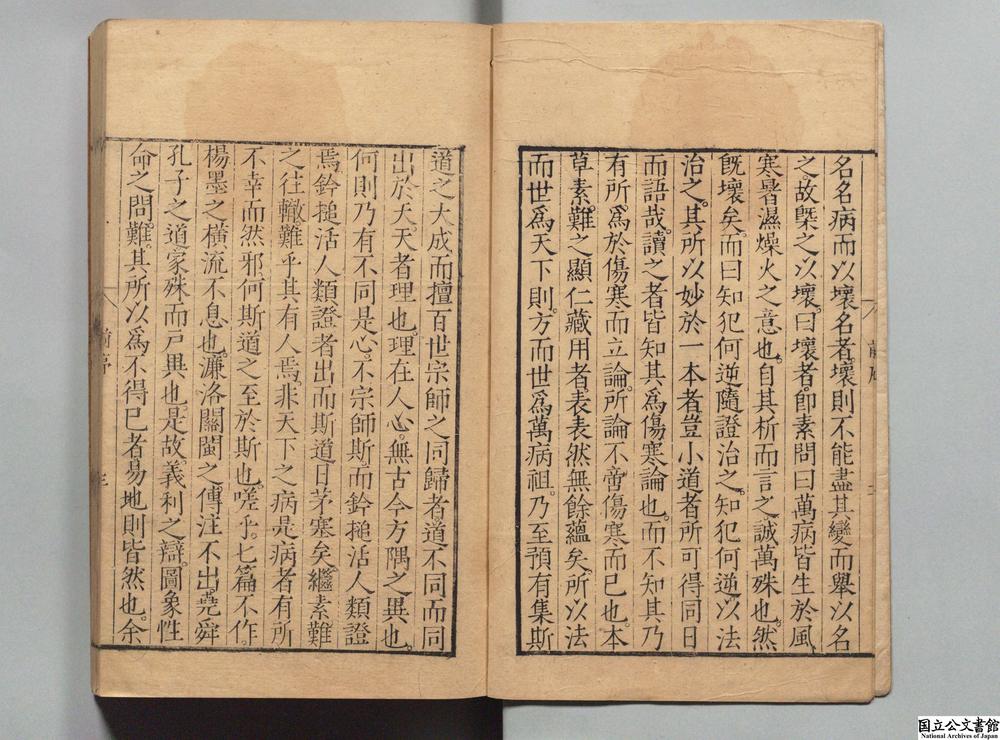 名名病而以壞名者壞則不能盡其變而舉以名
之故槩之以壞曰壞者即素問曰萬病皆生於風
寒暑濕燥火之意也自其析而言之誠萬殊也然
既壞矣而曰知犯何逆隨證治之知犯何逆以法
治之其所以妙於一本者豈小道者所可得同日
而語哉讀之者皆知其爲傷寒論也而不知其乃
有所爲於傷寒而立論所論不啻傷寒而已也本
草素難之顯仁藏用者表表然無餘蘊矣所以法
而世爲天下則方而世爲萬病祖乃至預有集斯
道之大成而擅百世宗師之同歸者道不同而同
出於天天者理也理在人心無古今方隅之異也
何則乃有不同是心不宗師斯而鈐搥活人類證
焉鈐搥活人類證者出而斯道日茅塞矣繼素難
之往轍難乎其有人焉非天下之病是病者有所
不幸而然邪何斯道之至於斯也嗟乎七篇不作
楊墨之橫流不息也濂洛關閩之傳注不出堯舜
孔子之道家殊而戸異也是故義利之辯圖象性
命之問難其所以爲不得已者易地則皆然也余
前序
国立公文書館
National Archives of Japan